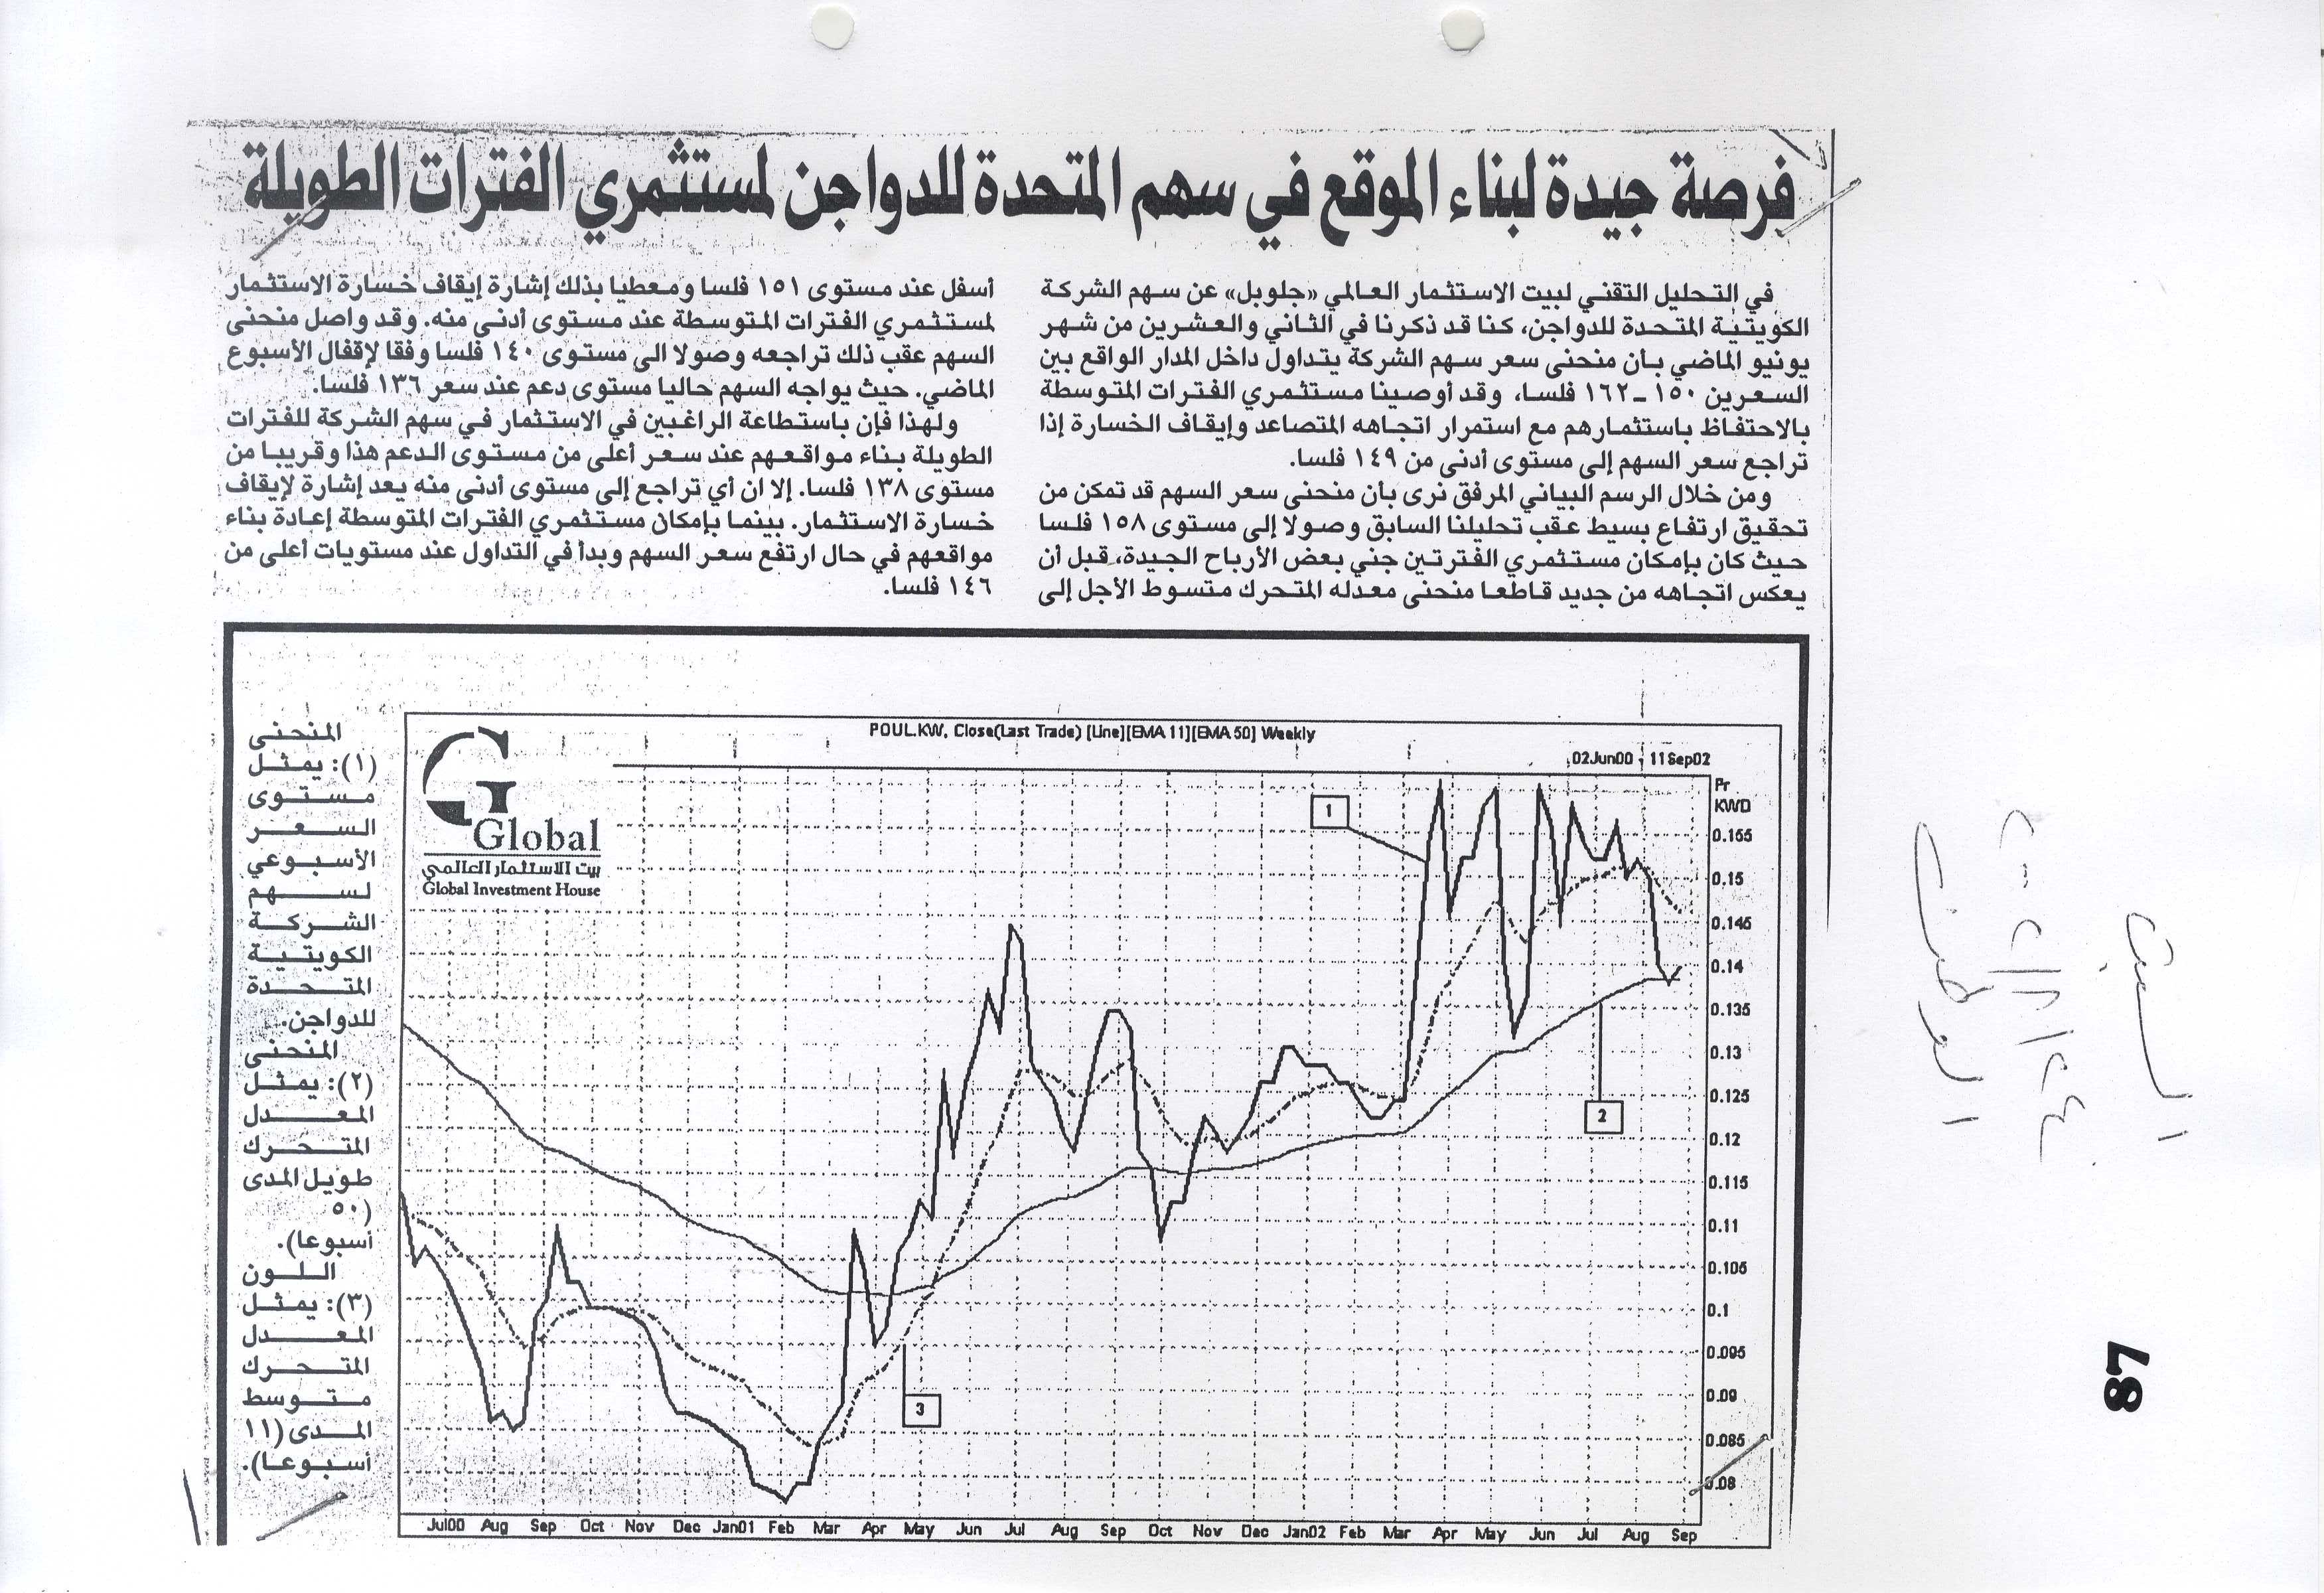 فرصة جيدة لبناء الموقع في سهم المتحدة للدواجن لمستثمري الفترات الطويلة
في التحليل التقني لبيت الاستثمار العالمي «جلوبل» عن سهم الشركة
الكويتية المتحدة للدواجن، كنا قد ذكرنا في الثاني والعشرين من شهر
يونيو الماضي بأن منحنى سعر سهم الشركة يتداول داخل المدار الواقع بين
السعرين ١٥٠ - ١٦٢ فلسا، وقد أوصينا مستثمري الفترات المتوسطة
بالاحتفاظ باستثمارهم مع استمرار اتجاهه المتصاعد وإيقاف الخسارة إذا
تراجع سعر السهم إلى مستوى أدنى من ١٤٩ فلسا.
ومن خلال الرسم البياني المرفق نرى بأن منحنى سعر السهم قد تمكن من
تحقيق ارتفاع بسيط عقب تحليلنا السابق وصولا إلى مستوى ١٥٨ فلسا
حيث كان بإمكان مستثمري الفترتين جني بعض الأرباح الجيدة، قبل أن
يعكس اتجاهه من جديد قاطعا منحنى معدله المتحرك متسوط الأجل إلى
أسفل عند مستوى ١٥١ فلسا ومعطيا بذلك إشارة إيقاف خسارة الاستثمار
لمستثمري الفترات المتوسطة عند مستوى أدنى منه. وقد واصل منحنى
السهم عقب ذلك تراجعه وصولا الى مستوى ١٤٠ فلسا وفقا لإقفال الأسبوع
الماضي. حيث يواجه السهم حاليا مستوى دعم عند سعر ١٣٦ فلسا.
ولهذا فإن باستطاعة الراغبين في الاستثمار في سهم الشركة للفترات
الطويلة بناء مواقعهم عند سعر أعلى من مستوى الدعم هذا وقريبا من
مستوى ١٣٨ فلسا. إلا ان أي تراجع إلى مستوى أدنى منه يعد إشارة لإيقاف
خسارة الاستثمار. بينما بإمكان مستثمري الفترات المتوسطة إعادة بناء
مواقعهم في حال ارتفع سعر السهم وبدأ في التداول عند مستويات أعلى من
١٤٦ فلسا.
المنحنى
(١): يمثل
مستوى
السعر
الأسبوعي
لسهم
الشركة
الكويتية
المتحدة
للدواجن.
المنحنى
(٢): يمثل
المعدل
المتحرك
طويل المدى
(٥٠
أسبوعا).
اللون
(٣): يمثل
المعدل
المتحرك
متوسط
المدى (١١
أسبوعا).
POUL.KW, Close(Last Trade) [Line][EMA 11][EMA 50] Weekly
02Jun00 - 11Sep02
Global
بيت الاستثمار العالمي
Global Investment House
Pr
KWD
0.155
0.15
0.145
0.14
0.135
0.13
0.125
0.12
0.115
0.11
0.105
0.1
0.095
0.09
0.085
0.08
1
2
3
Jul00 Aug Sep Oct Nov Dec Jan01 Feb Mar Apr May Jun Jul Aug Sep Oct Nov Dec Jan02 Feb Mar Apr May Jun Jul Aug Sep
السبت
الوطن
87